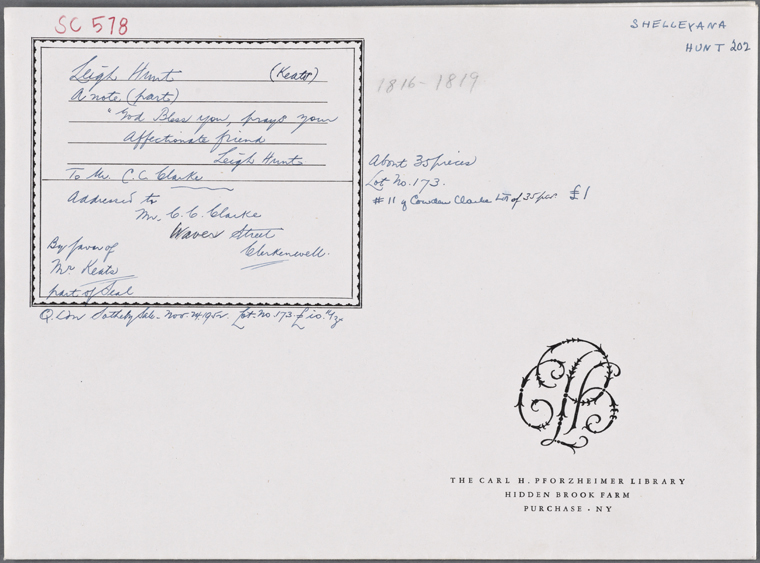 SC 578
SHELLEYANA
HUNT 202
Leigh Hunt (Keats)
A note (part)
"God Bless you, prays your
Affectionate friend
Leigh Hunt
To Mr. C. C. Clarke
Addressed to
Mr. C. C. Clarke
Waver Street
Clerkenwell.
By favor of
Mr Keats
part of Seal
1816-1819
About 35 pieces
Lot No. 173.
#11 of Cowden Clarke Lot of 35 pcs £1
Sotheby Sale. Nov 24, 1952. Lot. No. 173
THE CARL H. PFORZHEIMER LIBRARY
HIDDEN BROOK FARM
PURCHASE · NY